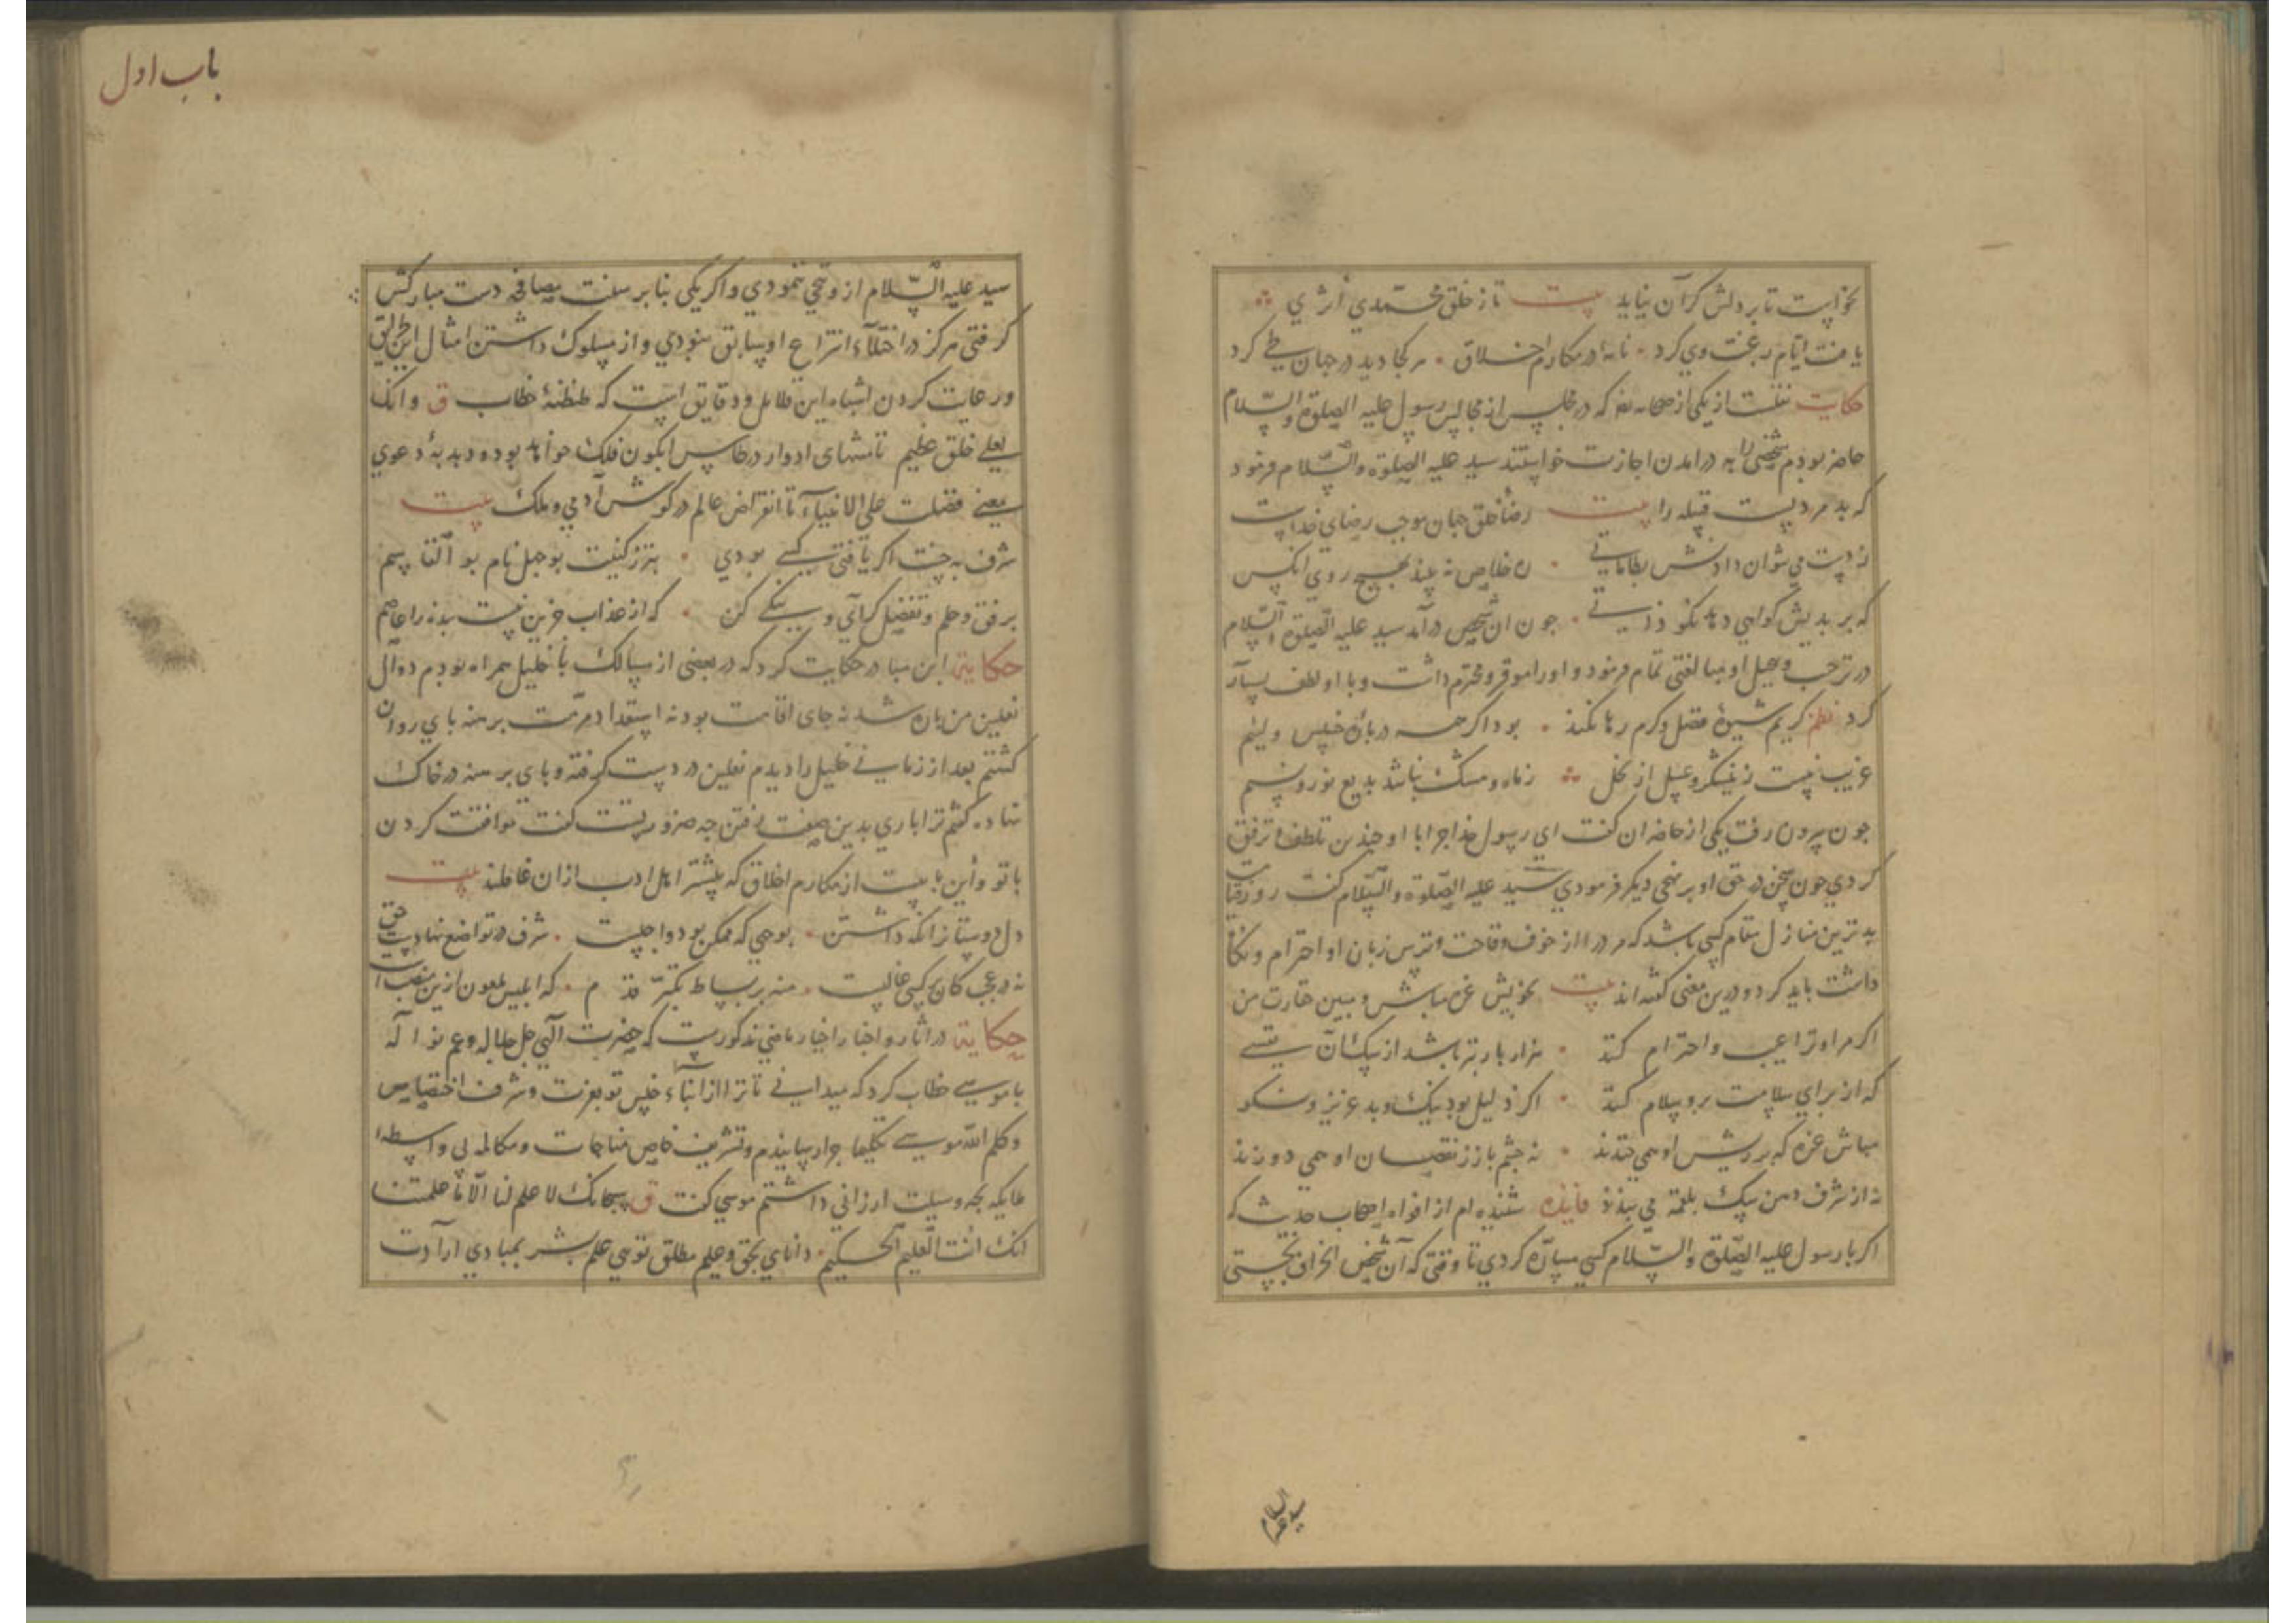 نخواست تا بر دلش گران نیاید بیت تا ز خلق محمّدی اثری
یافت ایام رغبت وی کرد نامه در مکارم اخلاق هر کجا دید در جهان طی کرد
حکایت نقلست از یکی از صحابه که در مجلس از مجالس رسول علیه الصلوة والسّلام
حاضر بودم شخصی را به درآمدن اجازت خواستند سید علیه الصلوة والسّلام فرمود
که بد مردیست قبیله را بیت رضاء خلق جهان موجب رضای خداست
نه دست می توان دادنش بطاماتی ره خلاص نه بیند بهیچ روی انکس
که بر بدیش کواهی دهد نکو ذاتی چون ان شخص درآمد سید علیه الصلوة السّلام
در ترحیب و تبجیل او مبالغتی تمام فرمود و اورا موقر و محترم داشت و با او لطف بسیار
کرد نظم کریم شیوۀ فضل و کرم رها نکند بود اکر همه دربارۀ خسیس و لئیم
غریب نیست ز نیشکر و عسل از نحل ز ماه و مشک نباشد بدیع نور و نسیم
جون بیرون رفت یکی از حاضران کفت ای رسول خدا چرا با او چندین تلطف و ترفق
کردی جون سخن در حق او بر نهجی دیکر فرمودی سید علیه الصّلوة والسّلام کفت روز قیامت
بدترین منازل مقام کسی باشد که مردم را از خوف وقاحت و ترس زبان او احترام و نکاه
داشت باید کرد و درین معنی کفته اند بیت بخویش غره مباش و مبین حقارت من
اکر مرا و ترا عیب و احترام کند هزار بار بتر باشد از سکان
که از برای سلامت برو سلام کند اکر ذلیل بود نیک و بد عزیز و نکو
مباش غره که بر ریش او همی خندند نه چشم باز ز نقصان او همی دوزند
نه از شرف دهن سک بلقمه می بندند فایده شنیده ام از افواه اصحاب حدیث که
اکر با رسول علیه الصّلوة والسّلام کسی مسارّه کردی تا وقتی که آن شخص انحراف نجستی
سید علیه السلام
باب اول
سید علیه السّلام ازو تنحّی ننمودی و اکر یکی بنابر سنت مصافحه دست مبارکش
کرفتی هرکز در اختلاء انتزاع او سابق نبودی و از مسلوک داشتن امثال این طرایق
ورعایت کردن اشباه این دلایل و دقایق است که طنطنۀ خطاب ق وانک
لعلی خلق عظیم تا منتهای ادوار در طاس ابکون فلک خواهد بود و دبدبۀ دعوی
یعنی فضلت علی الانبیاء تا انقراض عالم در کوش آدمی و ملک بیت
شرف به بخت اکر یافتی کسی بودی بتر ز کنیت بوجهل نام بوالقاسم
برفق و حلم و تفضل کرای و نیکی کن که از عذاب جزین نیست بنده را عاصم
حکایة ابن مبارک حکایت کرد که در بعضی از مسالک با خلیل همراه بودم دوال
نعلین من پاره شد نه جای اقامت بود نه استعداد مرمّت برهنه پای روان
کشتم بعد از زمانی خلیل را دیدم نعلین در دست کرفته و پای برهنه در خاک
نهاده کفتم ترا باری بدین صفت رفتن چه ضرورتست کفت موافقت کردن
با تو و این بابیست از مکارم اخلاق که بیشتر اهل ادب ازان غافلند بیت
دل دوستان نکه داشتن بوجهی که ممکن بود واجبست شرف در تواضع نهادست حق
نه در عجب کان بر کسی غالبست منه بر بساط تکبّر قدم که ابلیس ملعون ازین منصب است
حکایة در اثار و اخبار اخیار ماضی مذکورست که حضرت الهی جل جلاله و عم نواله
با موسی خطاب کرد که میدانی تا ترا از ابناء جنس تو بعزت و شرف اختصاص
و کلم الله موسی تکلیما چرا رسانیدم و تشریف خاص مناجات و مکالمه بی واسطۀ
ملایکه بچه وسیلت ارزانی داشتم موسی کفت ق سبحانک لا علم لنا الّا ما علمتنا
انک انت العلیم الحکیم دانای بحق و علیم مطلق تویی علم بشر بمبادی ارادت